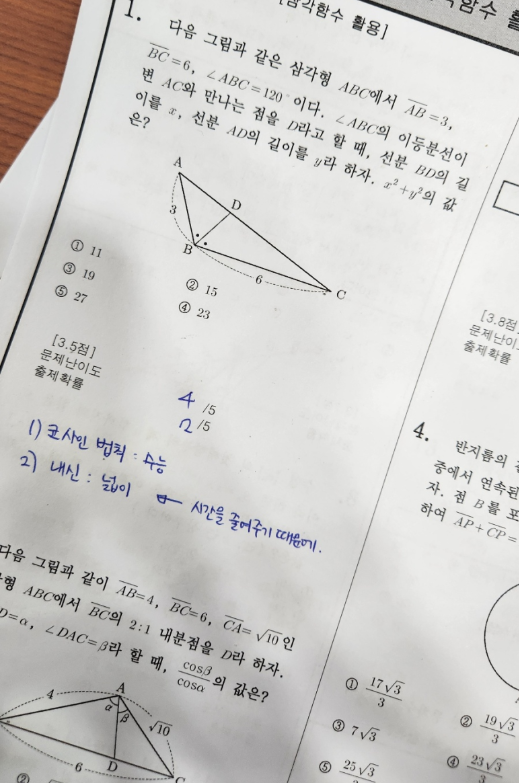 [삼각함수 활용]
1.
다음 그림과 같은 삼각형 ABC에서 AB=3,
BC=6, ∠ABC=120°이다. ∠ABC의 이등분선이
변 AC와 만나는 점을 D라고 할 때, 선분 BD의 길
이를 x, 선분 AD의 길이를 y라 하자. x²+y²의 값
은?
A
D
3
B
6
C
① 11
② 15
③ 19
④ 23
⑤ 27
[3.5점]
문제난이도
출제확률
4 /5
2 /5
1) 코사인 법칙 : 수능
2) 내신 : 넓이 ← 시간을 줄여주기 때문에.
다음 그림과 같이 AB=4, BC=6, CA=√10인
형 ABC에서 BC의 2:1 내분점을 D라 하자.
D=α, ∠DAC=β라 할 때, cosβ/cosα의 값은?
4
A
α
β
√10
6
D
C
②
[3.8점]
문제난이도
출제확률
4.
반지름의
중에서 연속된
자. 점 B를 포
하여 AP+CP=
① 17√3/3
② 19√3/3
③ 7√3
④ 23√3/3
⑤ 25√3/3